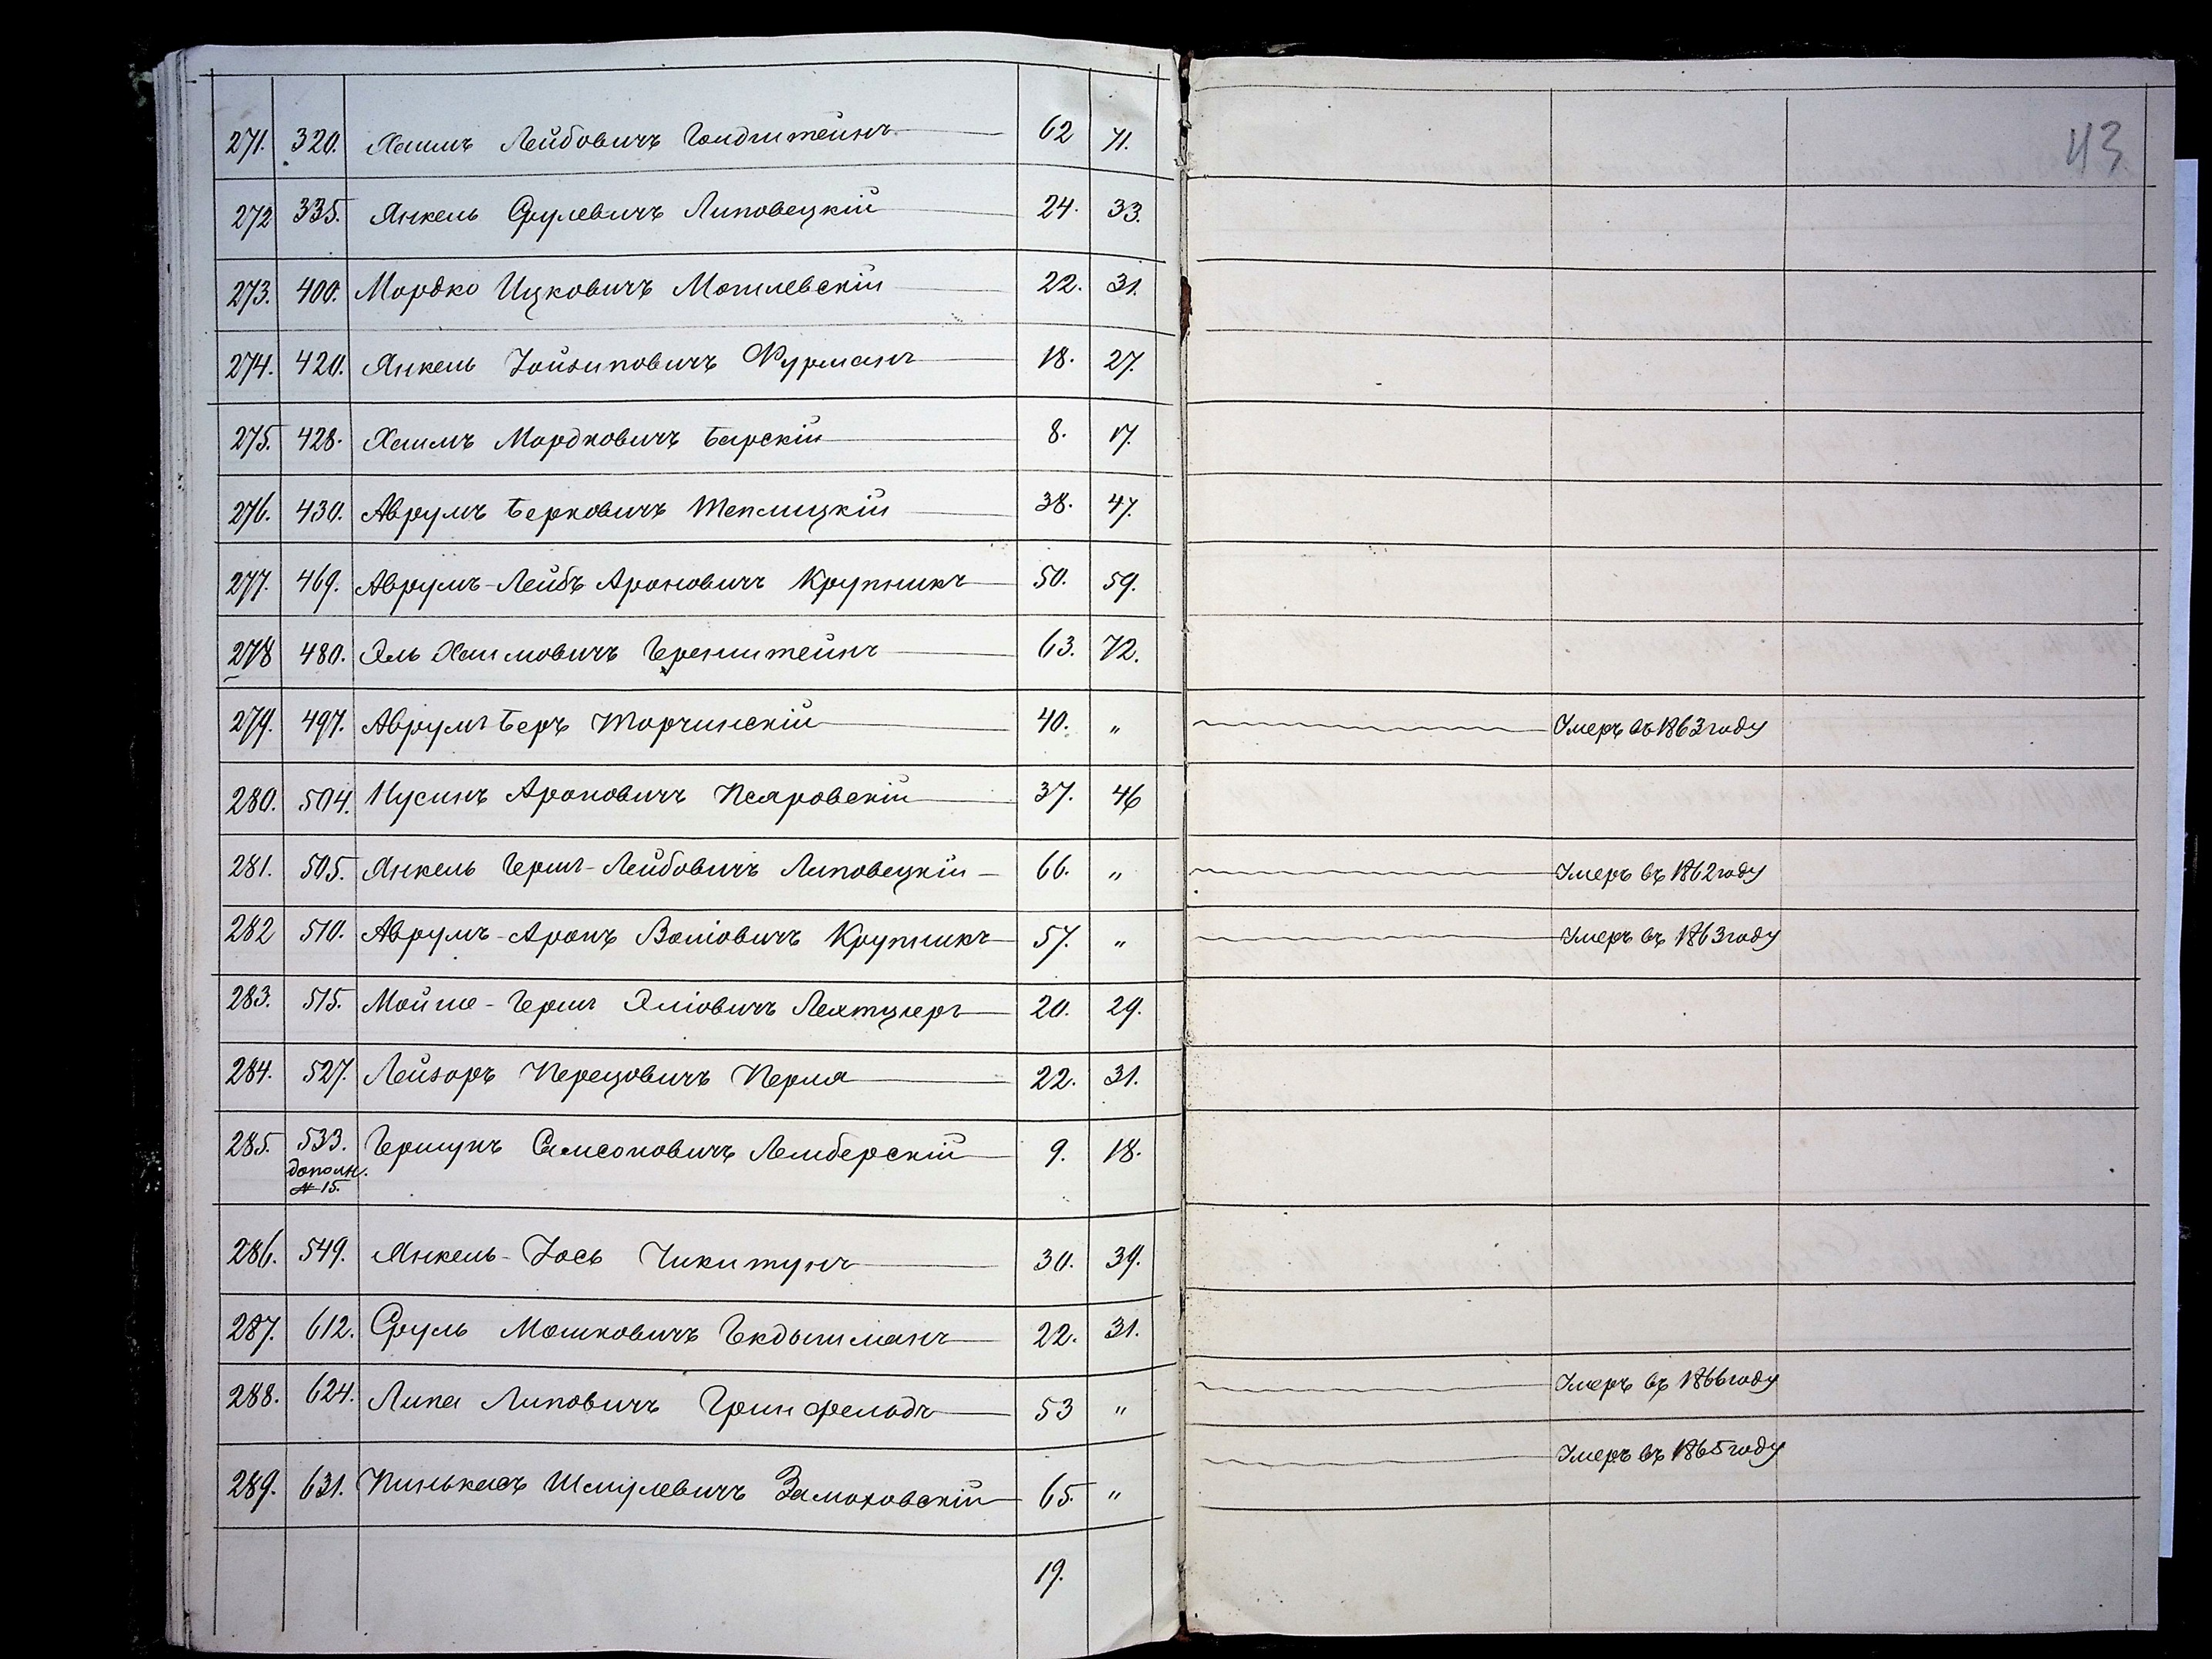 43
271. 320. Хаимъ Лейбовичъ Гольдштейнъ 62 71.
272 335. Янкель Срулевичъ Липовецкій 24. 33.
273. 400. Мордко Ицковичъ Могилевскій 22. 31.
274. 420. Янкель Іойзиповичъ Фурманъ 18. 27.
275. 428. Хаимъ Мордковичъ Барскій 8. 17.
276. 430. Аврумъ Берковичъ Теплицкій 38. 47.
277. 469. Аврумъ-Лейбъ Ароновичъ Крупникъ 50. 59.
278 480. Эль Хаимовичъ Геренштейнъ 63. 72.
279. 497. Аврумъ Беръ Торчинскій 40. " Умеръ въ 1863 году
280. 504. Нусинъ Ароновичъ Псяровскій 37. 46
281. 505. Янкель Герш-Лейбовичъ Липовецкій 66. " Умеръ въ 1862 году
282 510. Аврумъ-Аронъ Воліовичъ Крупникъ 57. " Умеръ въ 1863 году
283. 515. Мойше-Герш Эліовичъ 20. 29.
284. 527. Лейзоръ Перецовичъ Перля 22. 31.
285. 533. Гершунъ Самсоновичъ Лемберскій 9. 18.
дополн.
№ 15.
286. 549. Янкель-Іось Чикитунъ 30. 39.
287. 612. Сруль Мошковичъ Гекдышманъ 22. 31.
288. 624. Липа Липовичъ Гринфельдъ 53 " Умеръ въ 1866 году
289. 631. Пинькасъ Шмулевичъ Замоховскій 65. " Умеръ въ 1865 году
19.